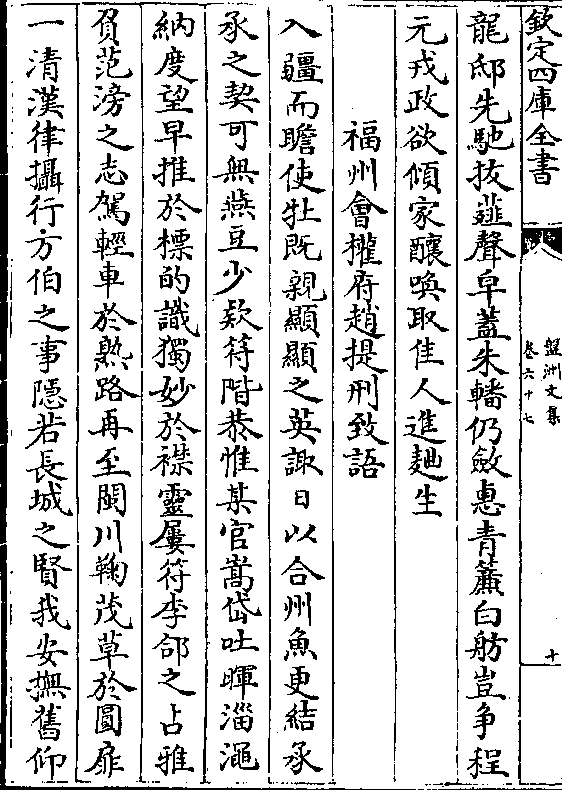 欽定四庫全書
盤洲文集
卷六十七
十
龍邸先馳拔薤聲皁蓋朱轓仍斂惠青簾白舫豈争程
元戎政欲傾家釀喚取佳人進麯生
福州會權府趙提刑致語
入疆而瞻使牡既親顯顯之英諏日以合州魚更結承
承之契可無燕豆少款荐階恭惟某官嵩岱吐暉淄澠
納度望早推於標的識獨妙於襟靈屢符李郃之占雅
負范滂之志駕輕車於熟路再至閩川鞠茂草於圜扉
一清漢律攝行方伯之事隱若長城之賢我安撫舊仰